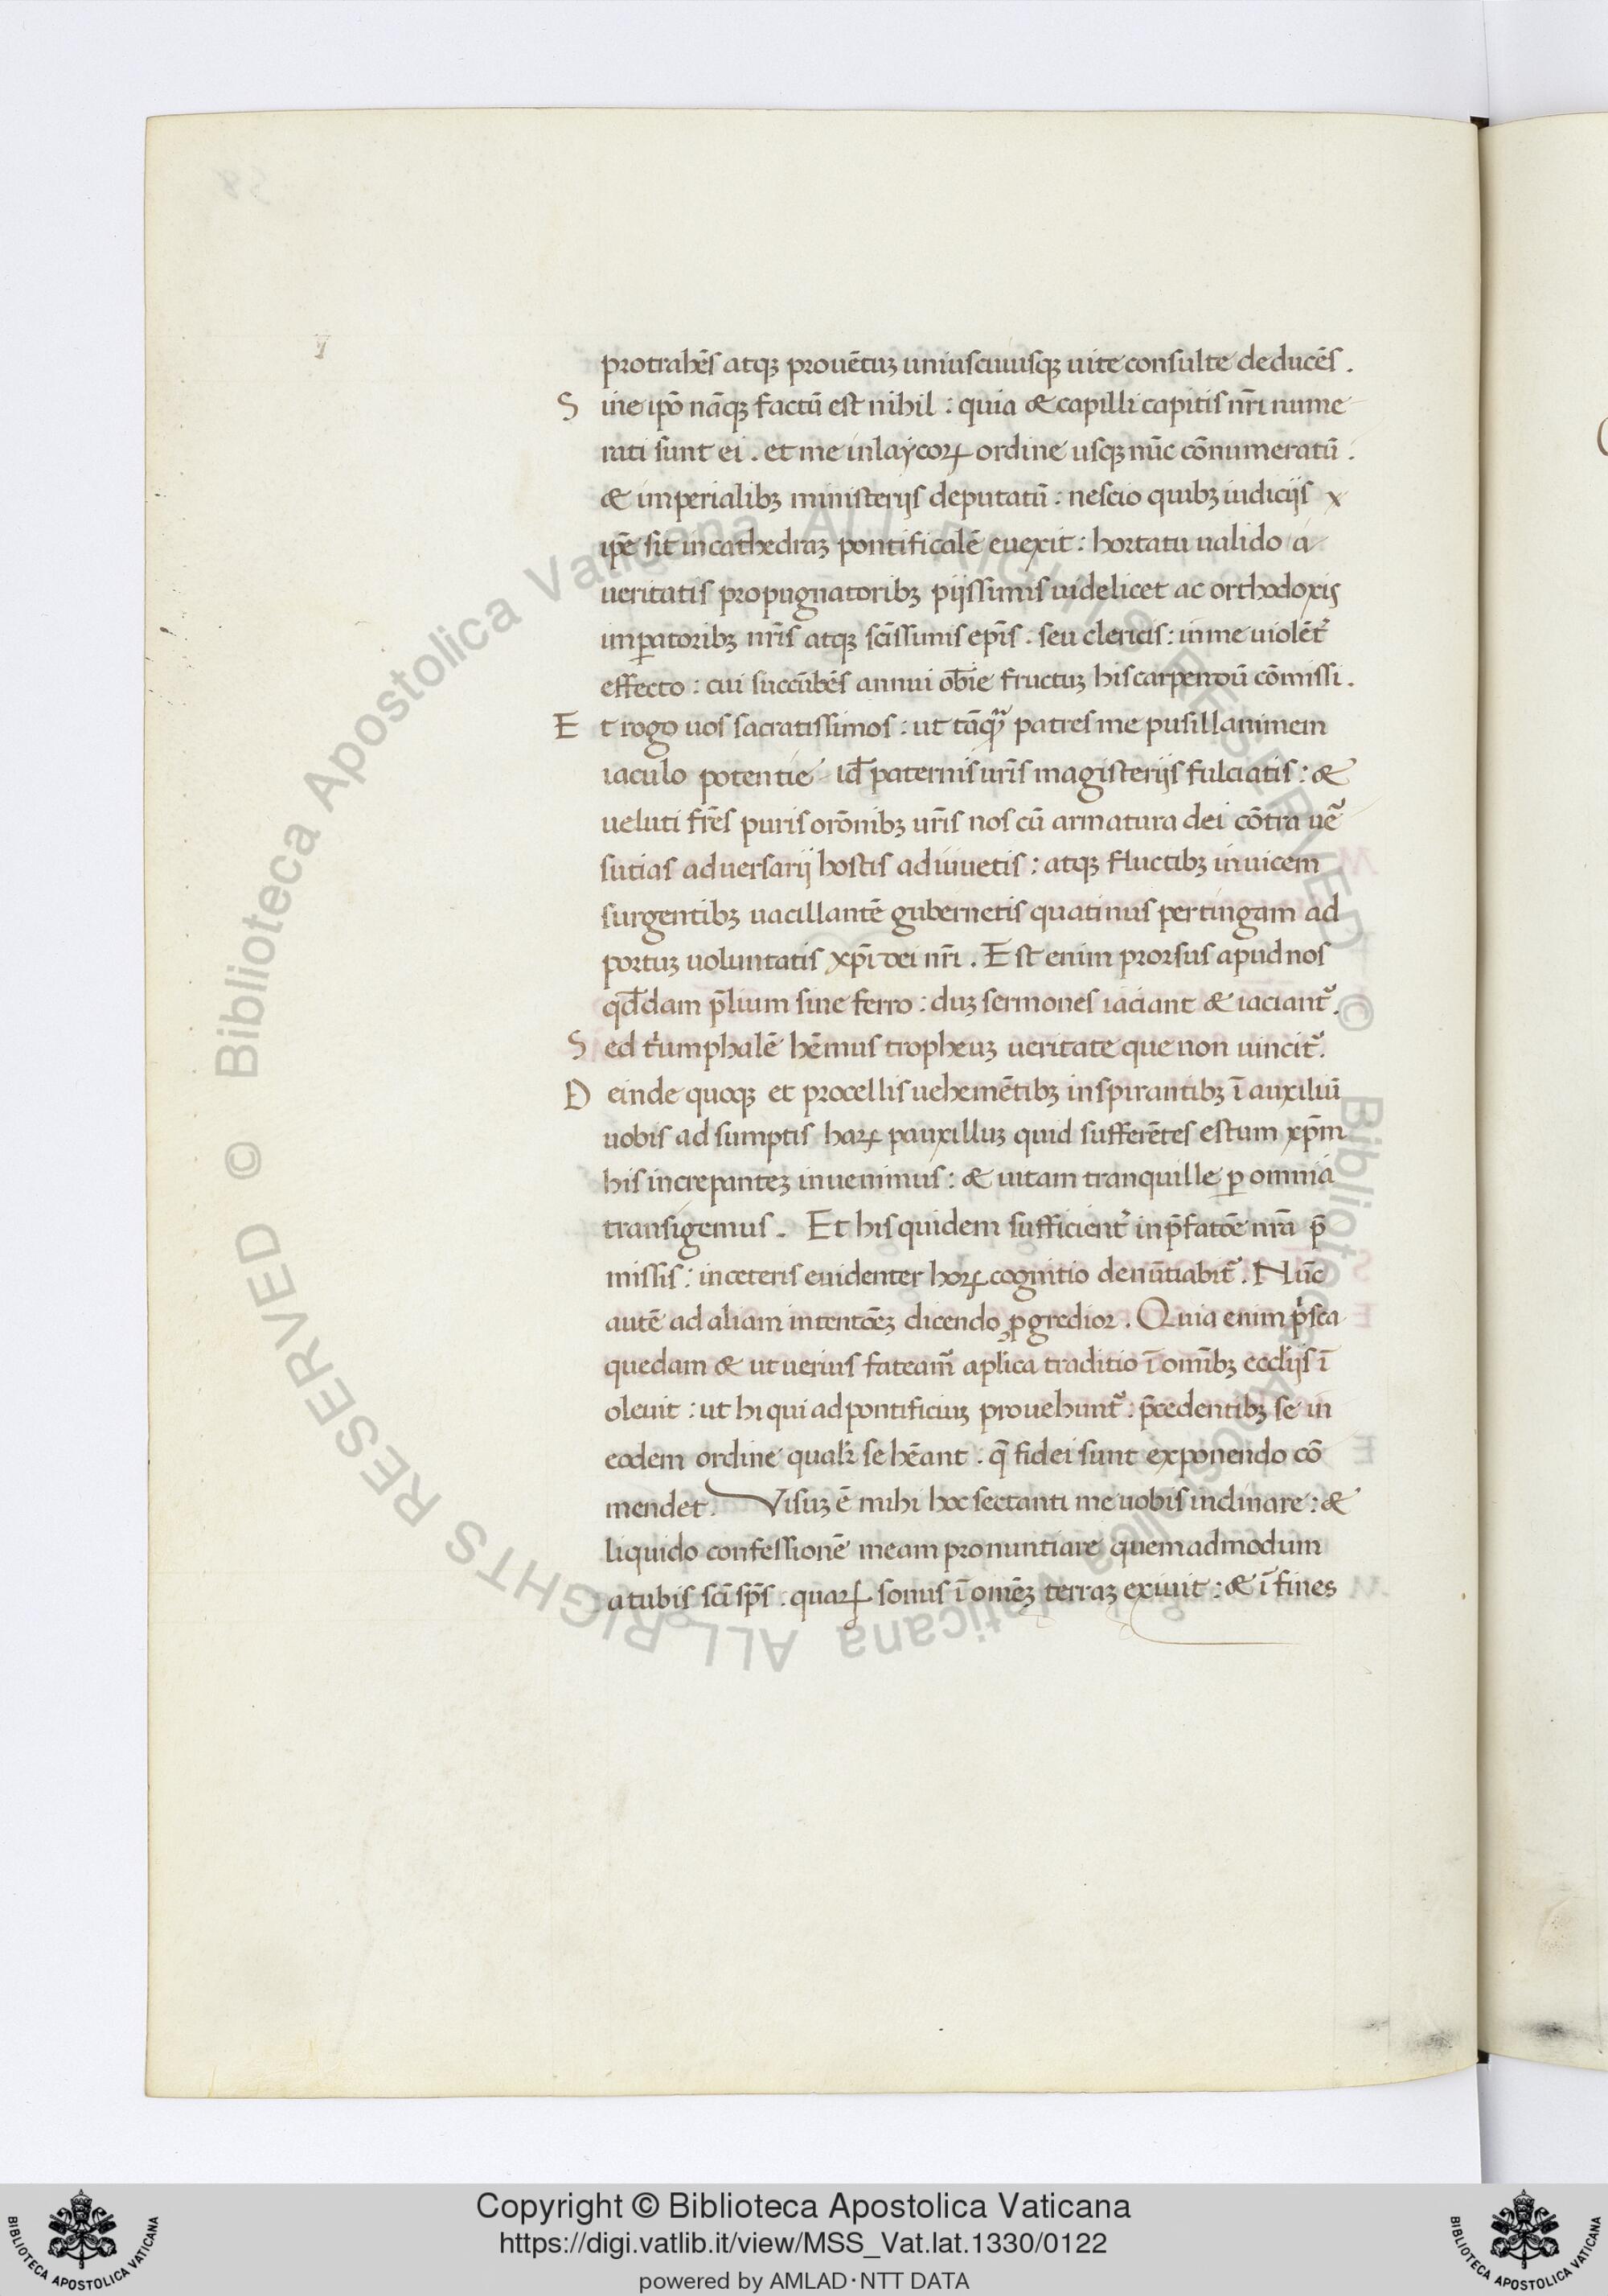 protrahēs atqꝫ prouētuꝫ uniuscuiusqꝫ uite consulte deducēs.
Sine ip̄o nāqꝫ factū est nihil : quia & capilli capitis nr̄i nume
rati sunt ei . et me in laycoꝝ ordine usqꝫ nūc cōnumeratū .
& imperialibꝫ ministerijs deputatū : nescio quibꝫ iudicijs x
ip̄e sit in cathedraꝫ pontificalē euexit : hortatu ualido a
ueritatis propugnatoribꝫ pijssimis uidelicet ac orthodoxis
imꝑatoribꝫ nr̄is atqꝫ sc̄issimis ep̄is . seu clericis : in me uiolēt̓
effecto : cui succūbēs annui ob̄ie fructuꝫ his carpendū cōmissi .
Et rogo uos sacratissimos : ut tāqᷓ patres me pusillanimem
iaculo potentie id̄ paternis ur̄is magisterijs fulciatis : &
ueluti fr̄es puris orōnibꝫ ur̄is nos cū armatura dei cōtra ue᷑
sutias aduersarij hostis adiuuetis : atqꝫ fluctibꝫ inuicem
surgentibꝫ uacillantē gubernetis quatinus pertingam ad
portuꝫ uoluntatis xp̄i dei nr̄i . Est enim prorsus apud nos
qd̄dam p̄lium sine ferro : duꝫ sermones iaciant & iaciant᷑.
Sed t̓umphalē hēmus tropheuꝫ ueritate que non uincit᷑.
Deinde quoqꝫ et procellis uehemētibꝫ inspirantibꝫ ī auxiliū
uobis ad sumptis haꝝ pauxilluꝫ quid sufferētes estum xp̄m
his increpanteꝫ inuenimus : & uitam tranquille ꝑ omnia
transigemus . Et his quidem sufficient̓ in p̄fatōe nr̄a p̄
missis : in ceteris euidenter hoꝝ cognitio denūtiabit᷑. Nūc
autē ad aliam intentōeꝫ dicendo ꝓgredior . Quia enim p̓sca
quedam & ut uerius fateam᷑ apl̓ica traditio ī omībꝫ eccl̓ijs ī
oleuit : ut hi qui ad pontificiuꝫ prouehunt᷑ . p̄cedentibꝫ se in
eodem ordine qualr̓ se hēant . q̄ fidei sunt exponendo cō
mendet . Visuꝫ ē mihi hoc sectanti me uobis inclinare : &
liquido confessionē meam pronuntiare quemadmodum
a tubis sc̄i sp̄s . quaꝝ sonus ī omēꝫ terraꝫ exiuit : & ī fines
Copyright © Biblioteca Apostolica Vaticana
https://digi.vatlib.it/view/MSS_Vat.lat.1330/0122
powered by AMLAD·NTT DATA